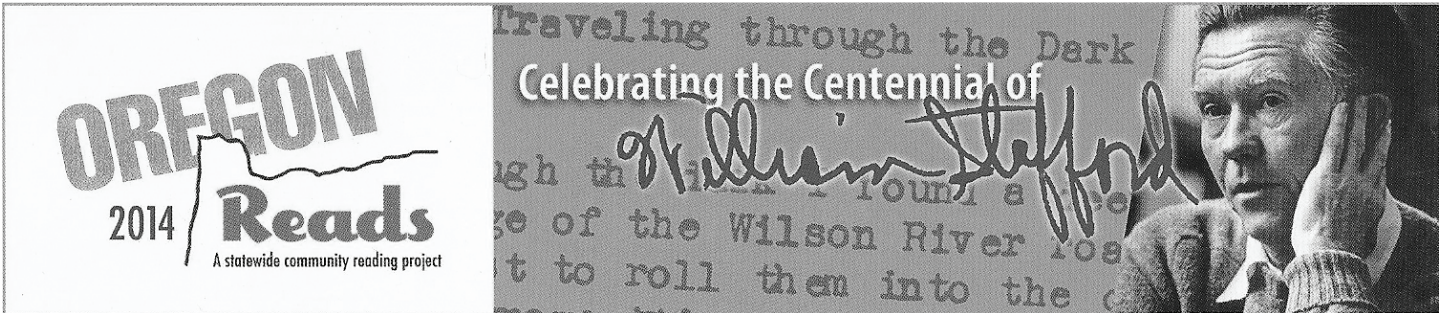 OREGON
2014 Reads
A statewide community reading project
Traveling through the Dark
Celebrating the Centennial of
William Stafford
ugh th I found a
ge of the Wilson River roa
t to roll them into the